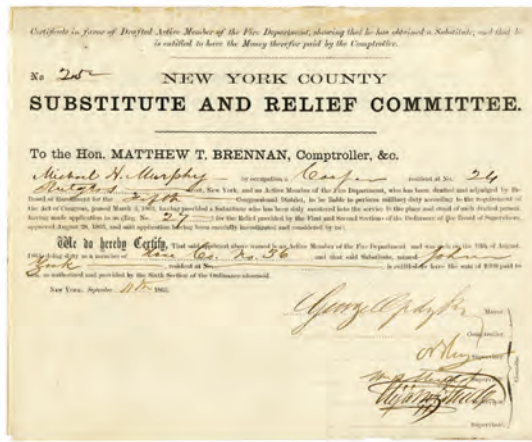 Certificate in favor of Drafted Active Member of the Fire Department, showing that he has obtained a Substitute, and that he
is entitled to have the Money therefor paid by the Comptroller.
No 25 NEW YORK COUNTY
SUBSTITUTE AND RELIEF COMMITTEE.
To the Hon. MATTHEW T. BRENNAN, Comptroller, &c.
Michael H. Murphy by occupation a Cooper resident at No. 24
Rutgers New York, and an Active Member of the Fire Department, who has been drafted and adjudged by
Board of Enrolment for the Congressional District, to be liable to perform military duty according to the requirement of
the Act of Congress, passed March 3, 1863, having provided a Substitute who has been duly mustered into the service in the place and stead of such drafted person,
having made application in writing, No. 27 for the Relief provided by the First and Second Sections of the Ordinance of the Board of Supervisors,
approved August 28, 1863, and said application having been carefully investigated and considered by us;
We do hereby Certify, That said applicant above named is an Active Member of the Fire Department and was such on the 28th of August
1863, doing duty as a member of Hose Co. No. 36, and that said Substitute, named John
resident at No. is entitled to have the sum of $300 paid to
as authorized and provided by the Sixth Section of the Ordinance aforesaid.
New York, 1863.
George Opdyke Mayor
Comptroller
Supervisor
Supervisor
Supervisor
Supervisor.
Committee